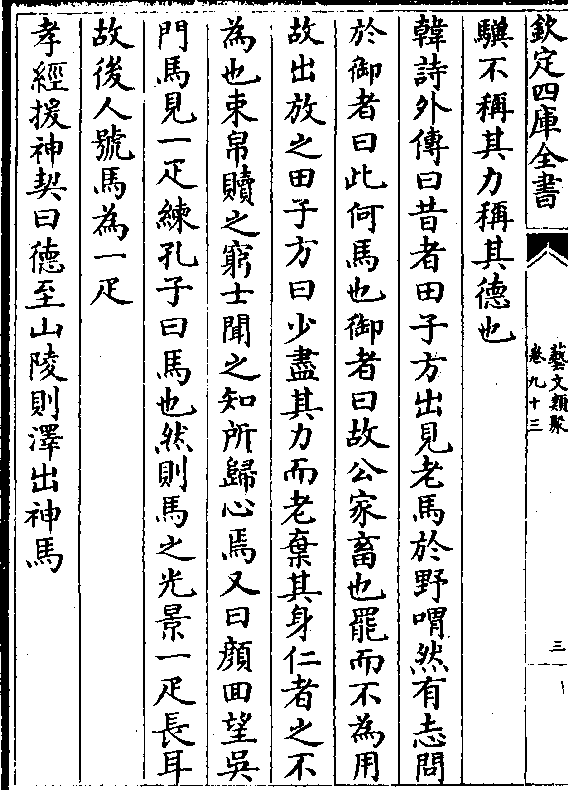 欽定四庫全書
藝文類聚
卷九十三
三
驥不稱其力稱其德也
韓詩外傳曰昔者田子方出見老馬於野喟然有志問
於御者曰此何馬也御者曰故公家畜也罷而不為用
故出放之田子方曰少盡其力而老棄其身仁者之不
為也束帛贖之窮士聞之知所歸心焉又曰顔回望吳
門馬見一疋練孔子曰馬也然則馬之光景一疋長耳
故後人號馬為一疋
孝經援神契曰德至山陵則澤出神馬